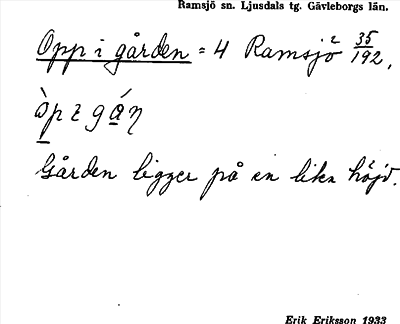 Ramsjö sn. Ljusdals tg. Gävleborgs län.
Opp i gården = 4 Ramsjö 2 35/192,
òp ɩ gán
Gården ligger på en liten höjd.
Erik Eriksson 1933